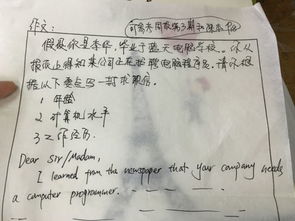 作文: (可参考周报第3期和课本P14)
假设你是李华,毕业于蓝天电脑学校。你从
报纸上得知某公司正在招聘电脑程序员。请你根
据以下要点写一封求职信。
1 年龄
2 计算机水平
3 工作经历
Dear Sir/Madam,
I learned from the newspaper that your company needs
a computer programmer.